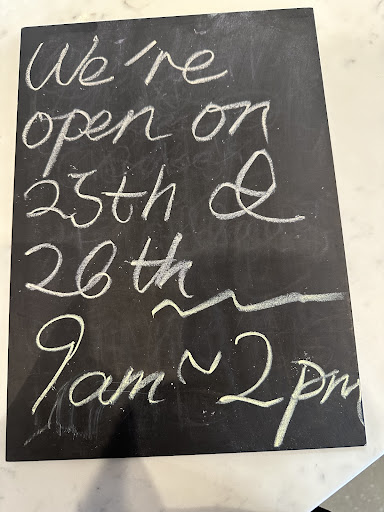 We're
open on
25th &
26th
9am ~ 2pm